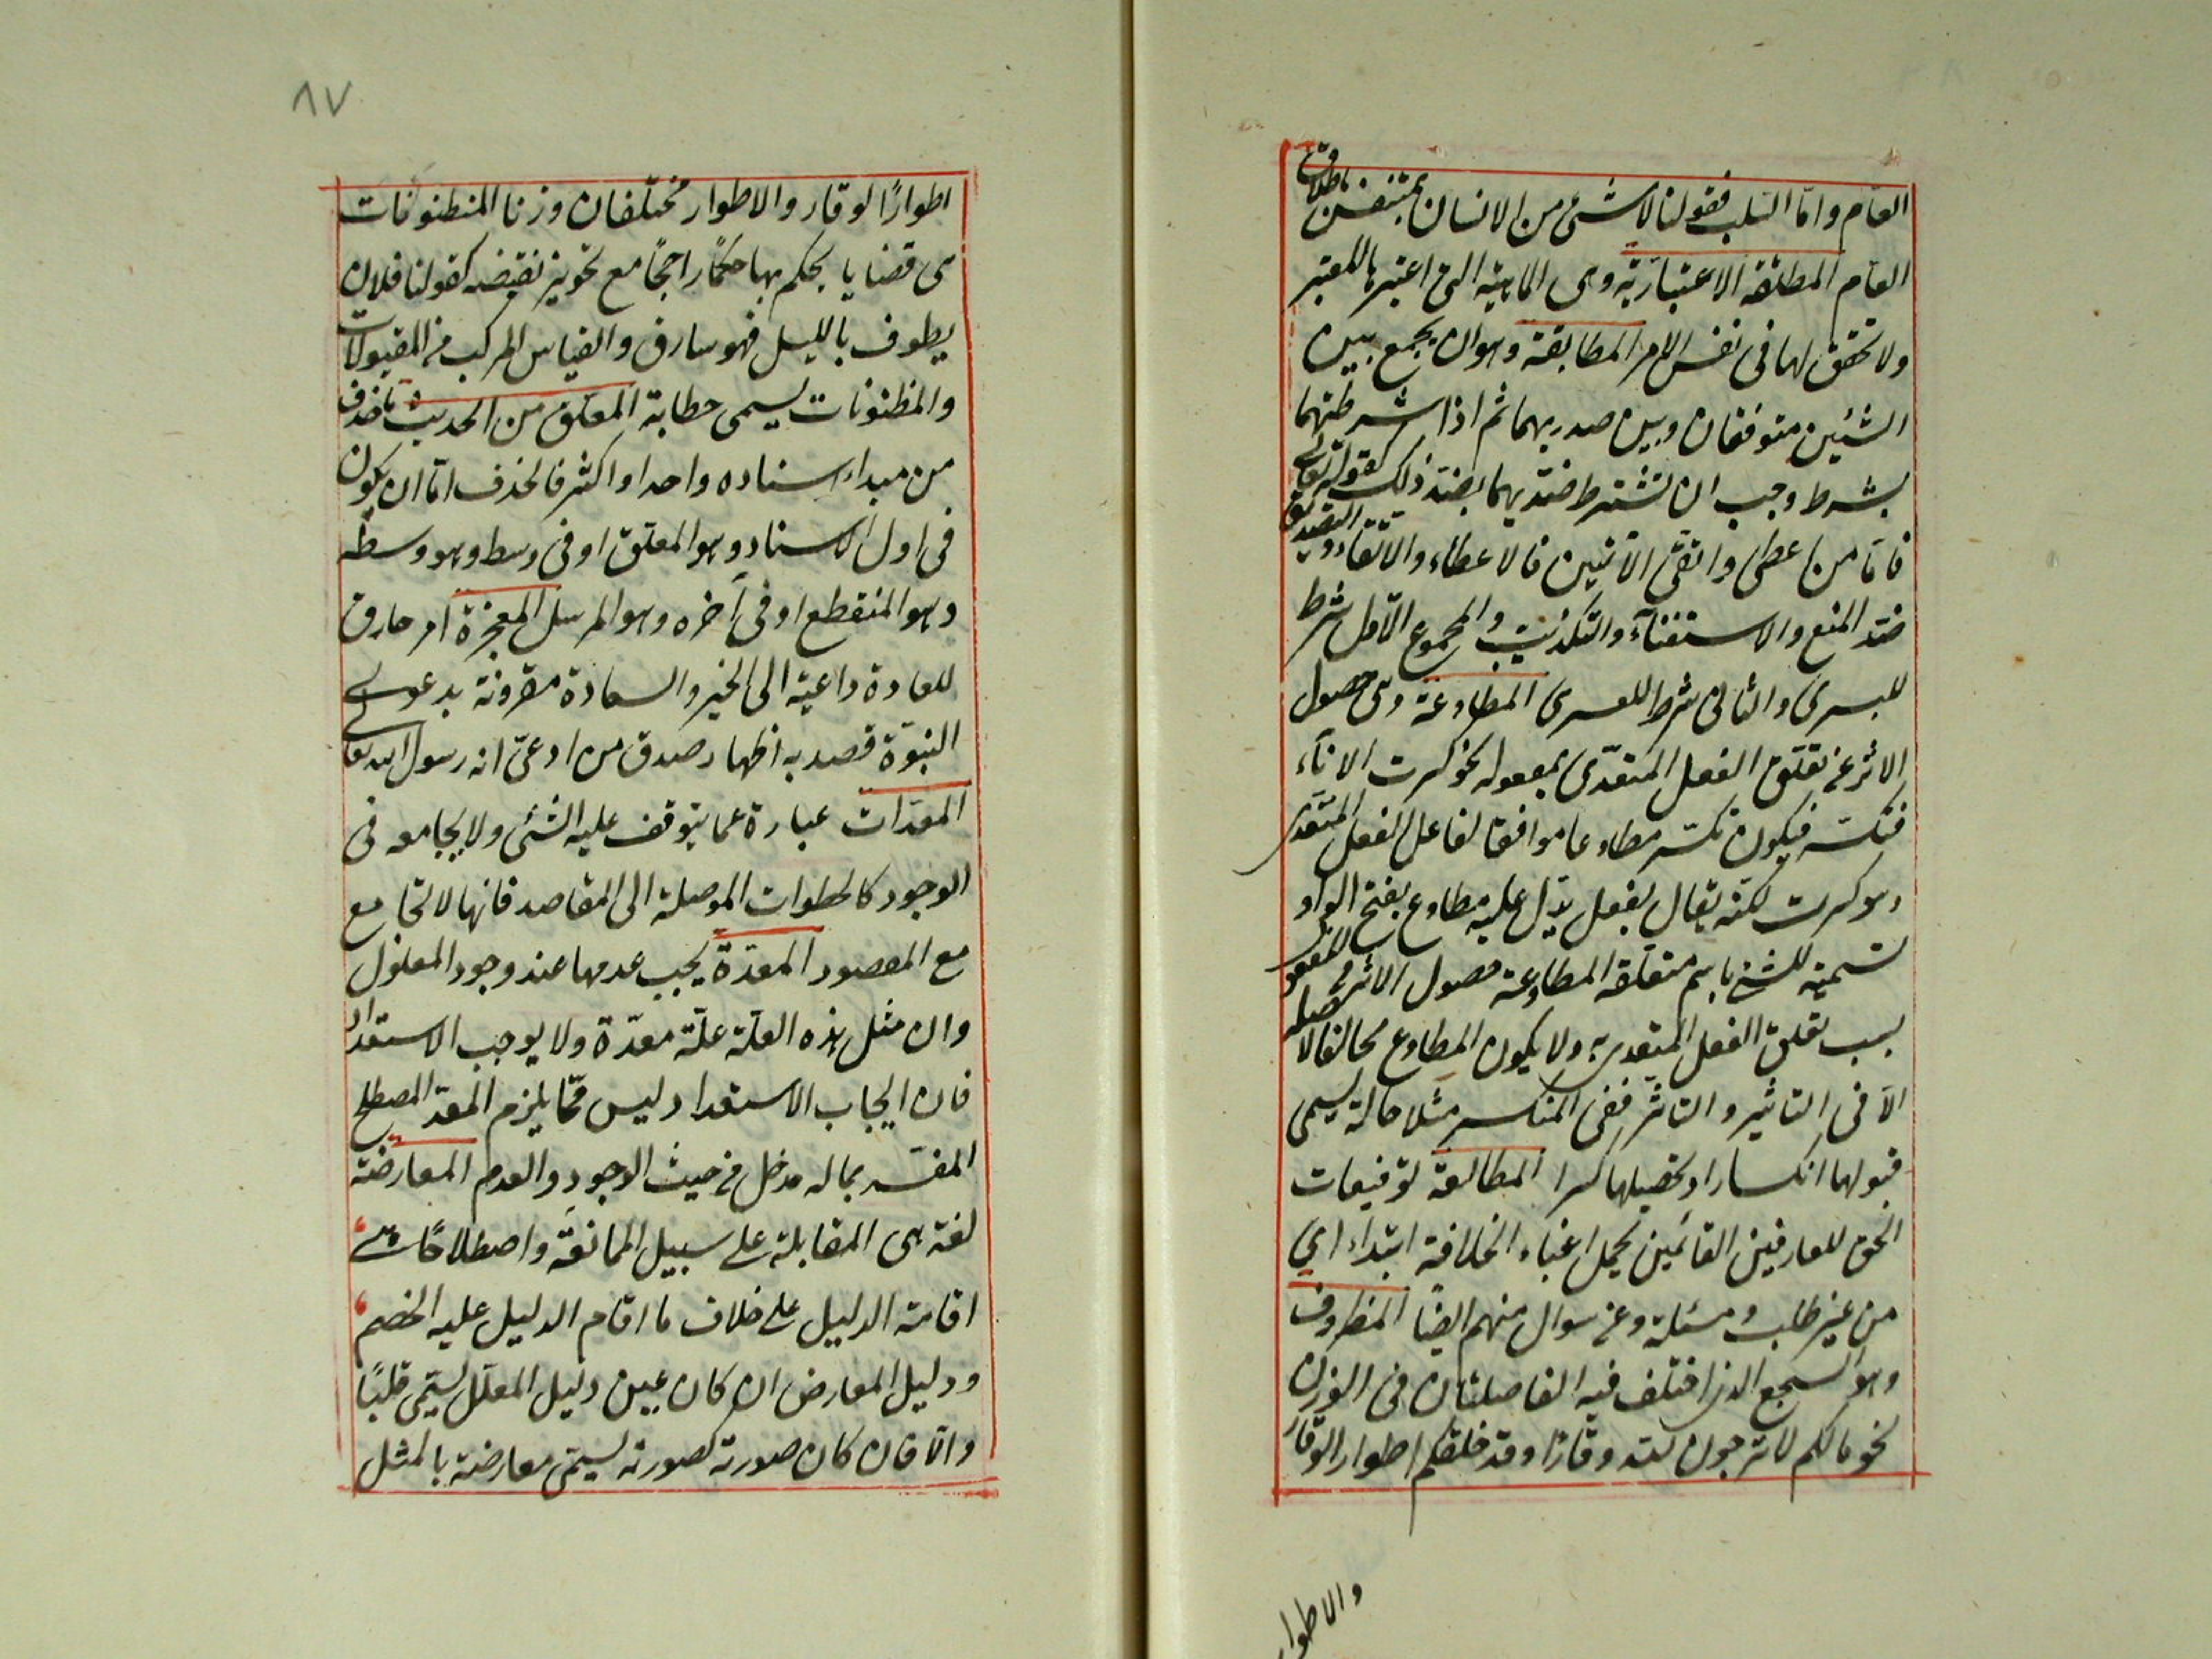 العام واما السلب فقولنا لا شئ من الانسان بمتنفس بالاطلاق
العام المطلقة الاعتبارية وهى الماهية التى اعتبرها المعتبر
ولا تحقق لها فى نفس الامر المطابقة وهو ان يجمع بين
الشيئين متوفقان وبين ضديهما ثم اذا شرطتهما
بشرط وجب ان تشترط ضديهما بضد ذلك كقوله تعالى
فاما من اعطى واتقى الآتيين فالاعطاء والاتقاء والتصديق
ضد المنع والاستغناء والتكذيب والمجموع الاول شرط
لليسرى والثانى شرط للعسرى المطاوعة وهى حصول
الاثر عن تعلق الفعل المتعدى بمفعوله نحو كسرت الاناء
فتكسر فيكون تكسر مطاوعا موافقا لفاعل الفعل المتعدى
وهو كسرت لكنه يقال لفعل يدل عليه مطاوع بفتح الواو
تسمية للشئ باسم متعلقه المطاوعة حصول الاثر فى المفعول
بسبب تعلق الفعل المتعدى به ولا يكون المطاوع مخالفا لاصله
الا فى التاثير والتاثر ففى المنكسر مثلا حالة يسمى
قبولها انكسارا وتحصيلها كسرا المطالعة توفيقات
الحق للعارفين القائمين بحمل اعباء الخلافة ابتداء اى
من غير طلب ومسئلة وعن سوال منهم ايضا المطرف
وهو السجع الذى اختلف فيه الفاصلتان فى الوزن
نحو مالكم لا ترجون لله وقارا وقد خلقكم اطوارا الوقار
والاطوار
٨٧
اطوارًا لوقار والاطوار مختلفان وزنا المنظنونات
هى قضايا يحكم بها حكمًا راجحًا مع تجويز نقيضه كقولنا فلان
يطوف بالليل فهو سارق والقياس المركب من المقبولات
والمظنونات يسمى خطابة المعلق من الحديث ما حذف
من مبداء اسناده واحد او اكثر فالحذف اما ان يكون
فى اول الاسناد وهو المعلق او فى وسط وهو وسطه
وهو المنقطع او فى آخره وهو المرسل المعجزة امر خارق
للعادة داعية الى الخير والسعادة مقرونة بدعوى
النبوة قصد به اظهار صدق من ادعى انه رسول الله تعالى
المعدات عبارة عما يتوقف عليه الشئ ولا يجامعه فى
الوجود كالخطوات الموصلة الى المقاصد فانها لا تجامع
مع المقصود المعدة يجب عدمها عند وجود المعلول
وان مثل هذه العلة علة معدة ولا يوجب الاستعداد
فان ايجاب الاستعداد ليس مما يلزم المعد المصطلح
المفسر بما له مدخل من حيث الوجود والعدم المعارضة
لغة هى المقابلة على سبيل الممانعة واصطلاحًا هى
اقامة الدليل على خلاف ما اقام الدليل عليه الخصم
ودليل المعارض ان كان عين دليل المعلل يسمى قلبًا
والا فان كان صورته كصورته يسمى معارضة بالمثل